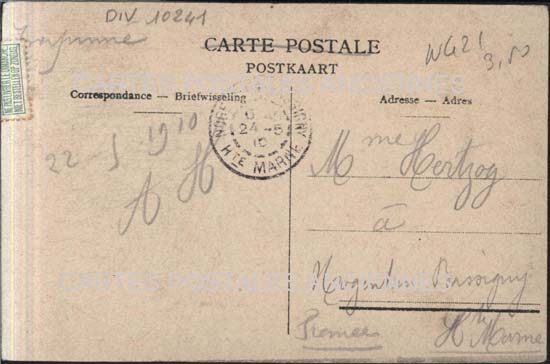 DIV 10241
Imprimé
WG21
3,50
CARTE POSTALE
POSTKAART
Correspondance — Briefwisseling
Adresse — Adres
24-5
10
HTE MARNE
22-5 1910
A H
Mme Hertzog
à
Nogent en Bassigny
Hte Marne
France
CARTES POSTALES ANCIENNES
CARTES POSTALES ANCIENNES